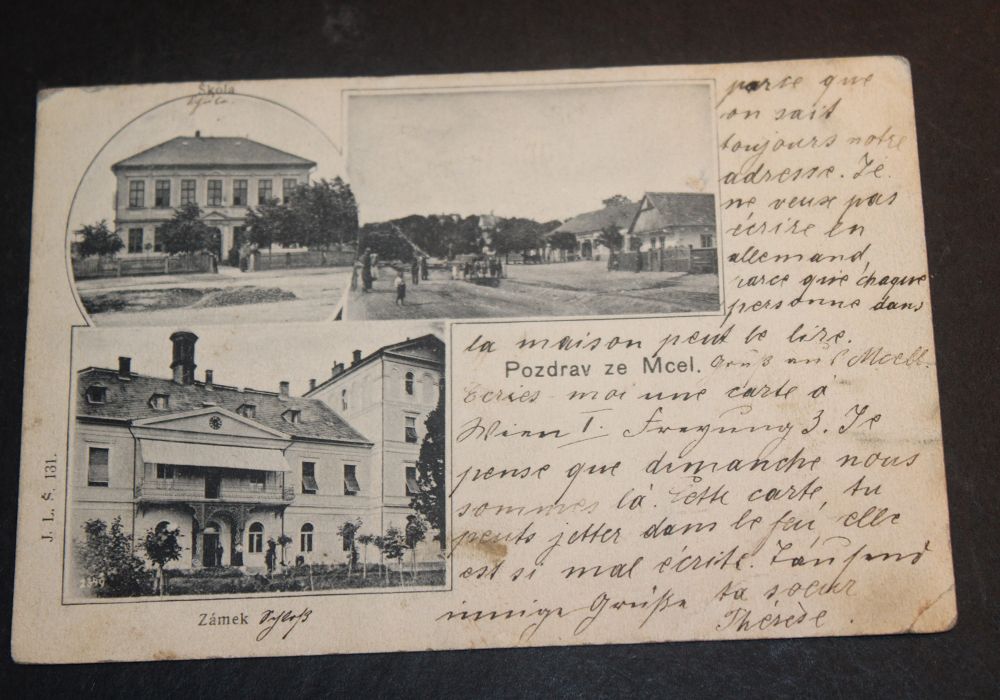 Škola
Schule.
parce que
on sait
toujours notre
adresse. Je
ne veux pas
écrire en
allemand,
parce que chaque
personne dans
la maison peut le lire.
Pozdrav ze Mcel. Gruß aus Mcell.
Ecries-moi une carte á
Wien I. Freyung 3. Je
pense que dimanche nous
sommes lá. Cette carte, tu
peuts jetter dans le feú, elle
est si mal écrite. Tausend
innige Grüße ta soeur
Thérèse.
J. L. Š. 131.
Zámek Schloß